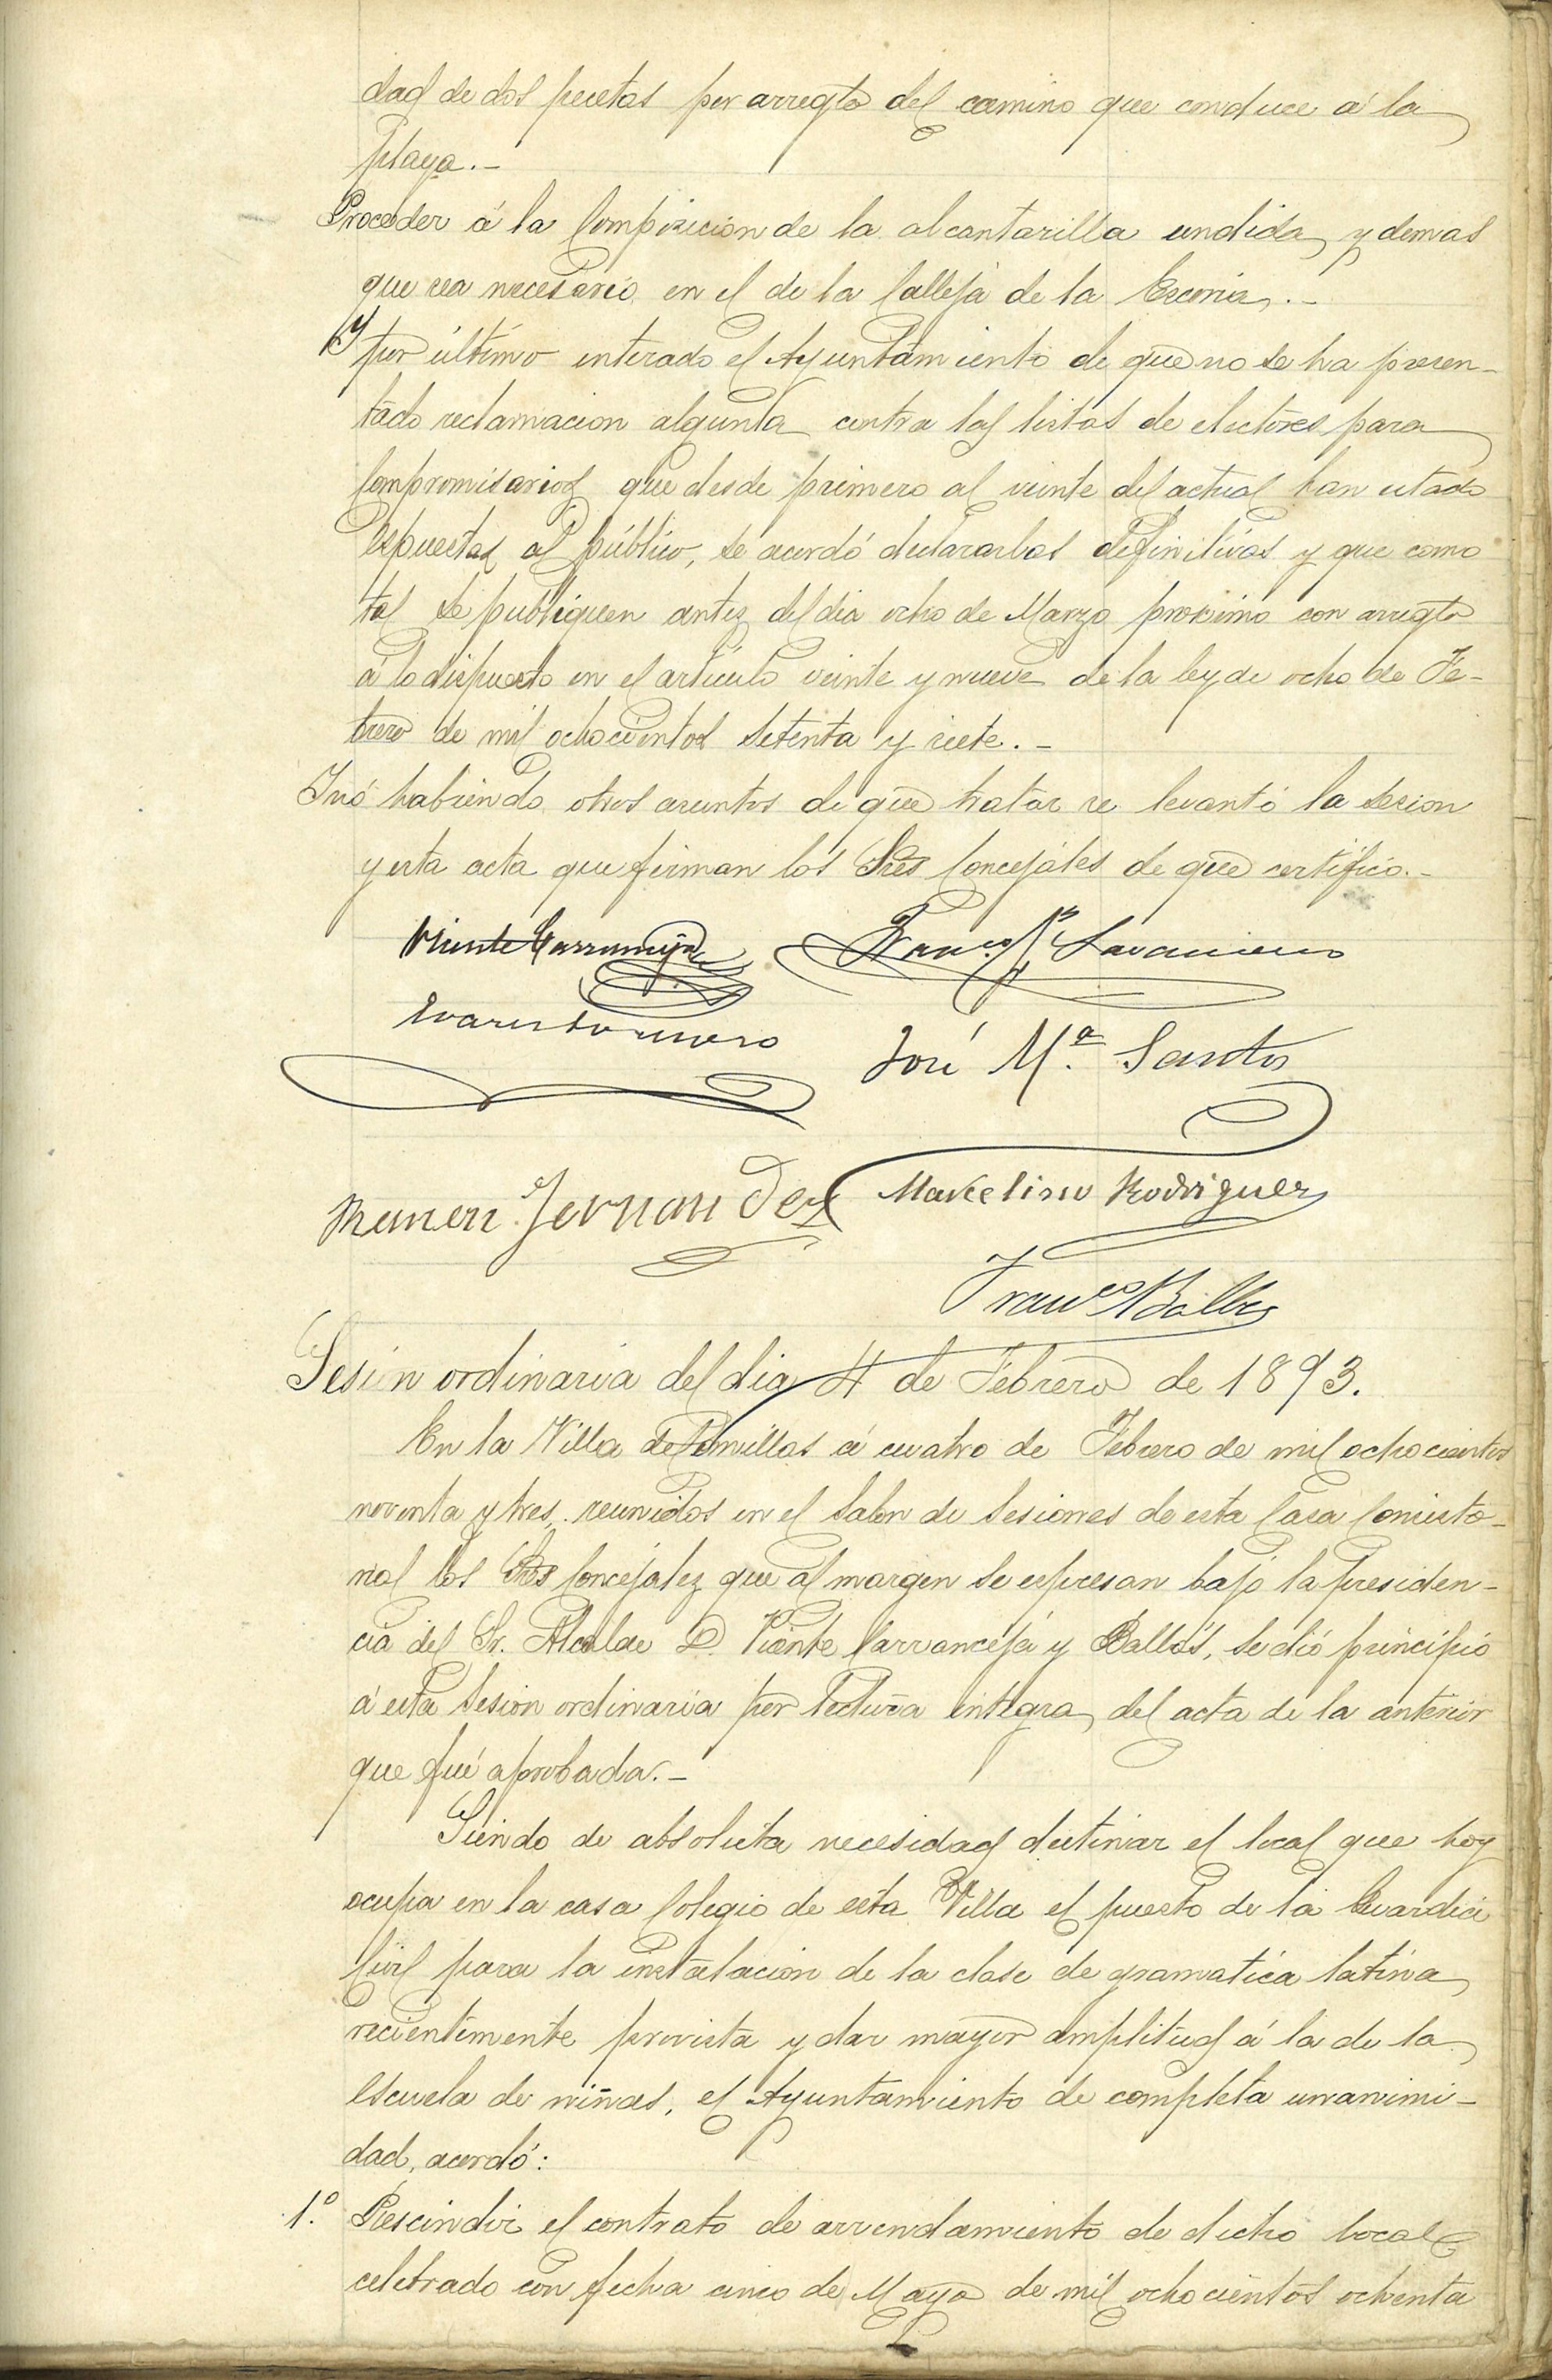 dad de dos pecetas por arreglo del camino que conduce á la
playa.-
Proceder á la Compizicion de la alcantarilla undida y demas
que sea necesario en el de la Calleja de la Escoria.-
Y por último enterado el Ayuntamiento de que no se ha presen-
tado reclamacion algunta contra las listas de electores para
Compromisarios que desde primero al veinte del actual han estado
espuestas al público, se acordó declararlas definitivas y que como
tal se publiquen antes del dia ocho de Marzo proximo con arreglo
á lo dispuesto en el artículo veinte y nueve de la ley de ocho de Fe-
brero de mil ochocientos setenta y siete.-
Y nó habiendo otros asuntos de que tratar se levantó la sesion
y esta acta que firman los Sres Concejales de que certifico.-
Vicente Carranceja Franco
Evaristo
José Mª Santos
Ramon Fernandez Marcelino Rodriguez
Franco
Sesión ordinaria del dia 4 de Febrero de 1893.
En la Villa de Comillas á cuatro de Febrero de mil ochocientos
noventa y tres, reunidos en el Salon de Sesiones de esta Casa Consisto-
rial los Sres Concejales que al margen se espresan bajo la presiden-
cia del Sr. Alcalde D. Vicente Carranceja y Ballas, se dió principio
á esta Sesion ordinaria por lectura integra del acta de la anterior
que fué aprobada.-
Siendo de absoluta necesidad destinar el local que hoy
ocupa en la casa Colegio de esta Villa el puesto de la Guardia
Civil para la instalacion de la clase de gramatica latina
recientemente provista y dar mayor amplitud á la de la
escuela de niñas, el Ayuntamiento de completa unanimi-
dad, acordó:
1.º Rescindir el contrato de arrendamiento de dicho local
celebrado con fecha cinco de Mayo de mil ochocientos ochenta